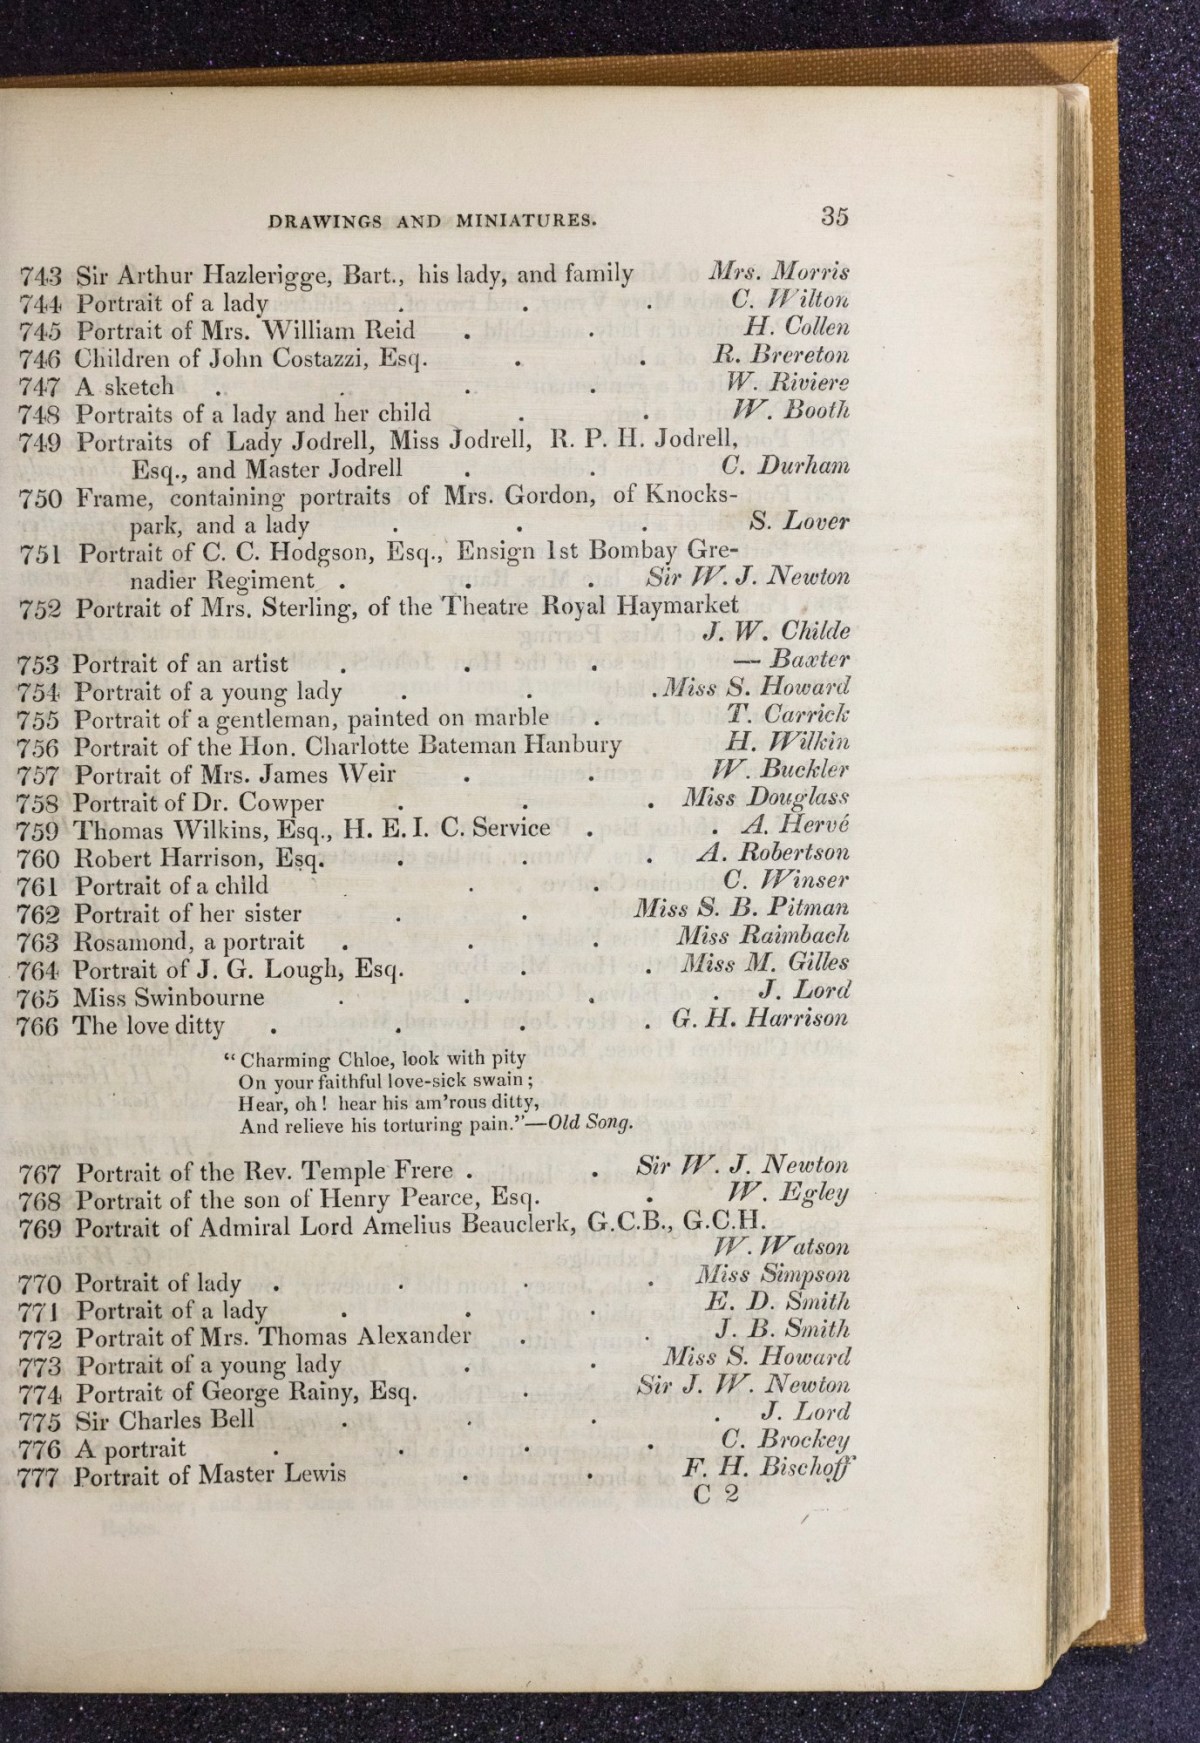 DRAWINGS AND MINIATURES. 35
743 Sir Arthur Hazlerigge, Bart., his lady, and family Mrs. Morris
744 Portrait of a lady . . . C. Wilton
745 Portrait of Mrs. William Reid . . H. Collen
746 Children of John Costazzi, Esq. . . R. Brereton
747 A sketch . . . . W. Riviere
748 Portraits of a lady and her child . . W. Booth
749 Portraits of Lady Jodrell, Miss Jodrell, R. P. H. Jodrell,
Esq., and Master Jodrell . . C. Durham
750 Frame, containing portraits of Mrs. Gordon, of Knocks-
park, and a lady . . . S. Lover
751 Portrait of C. C. Hodgson, Esq., Ensign 1st Bombay Gre-
nadier Regiment . . . Sir W. J. Newton
752 Portrait of Mrs. Sterling, of the Theatre Royal Haymarket
J. W. Childe
753 Portrait of an artist . . . — Baxter
754 Portrait of a young lady . . . Miss S. Howard
755 Portrait of a gentleman, painted on marble . T. Carrick
756 Portrait of the Hon. Charlotte Bateman Hanbury H. Wilkin
757 Portrait of Mrs. James Weir . . W. Buckler
758 Portrait of Dr. Cowper . . . Miss Douglass
759 Thomas Wilkins, Esq., H. E. I. C. Service . . A. Hervé
760 Robert Harrison, Esq. . . . A. Robertson
761 Portrait of a child . . C. Winser
762 Portrait of her sister . . Miss S. B. Pitman
763 Rosamond, a portrait . . . Miss Raimbach
764 Portrait of J. G. Lough, Esq. . . Miss M. Gilles
765 Miss Swinbourne . . . . J. Lord
766 The love ditty . . . . G. H. Harrison
“ Charming Chloe, look with pity
On your faithful love-sick swain ;
Hear, oh ! hear his am'rous ditty,
And relieve his torturing pain.”—Old Song.
767 Portrait of the Rev. Temple Frere . . Sir W. J. Newton
768 Portrait of the son of Henry Pearce, Esq. . W. Egley
769 Portrait of Admiral Lord Amelius Beauclerk, G.C.B., G.C.H.
W. Watson
770 Portrait of lady . . . . Miss Simpson
771 Portrait of a lady . . . E. D. Smith
772 Portrait of Mrs. Thomas Alexander . . J. B. Smith
773 Portrait of a young lady . . Miss S. Howard
774 Portrait of George Rainy, Esq. . Sir J. W. Newton
775 Sir Charles Bell . . . . J. Lord
776 A portrait . . . . C. Brockey
777 Portrait of Master Lewis . . F. H. Bischoff
C 2